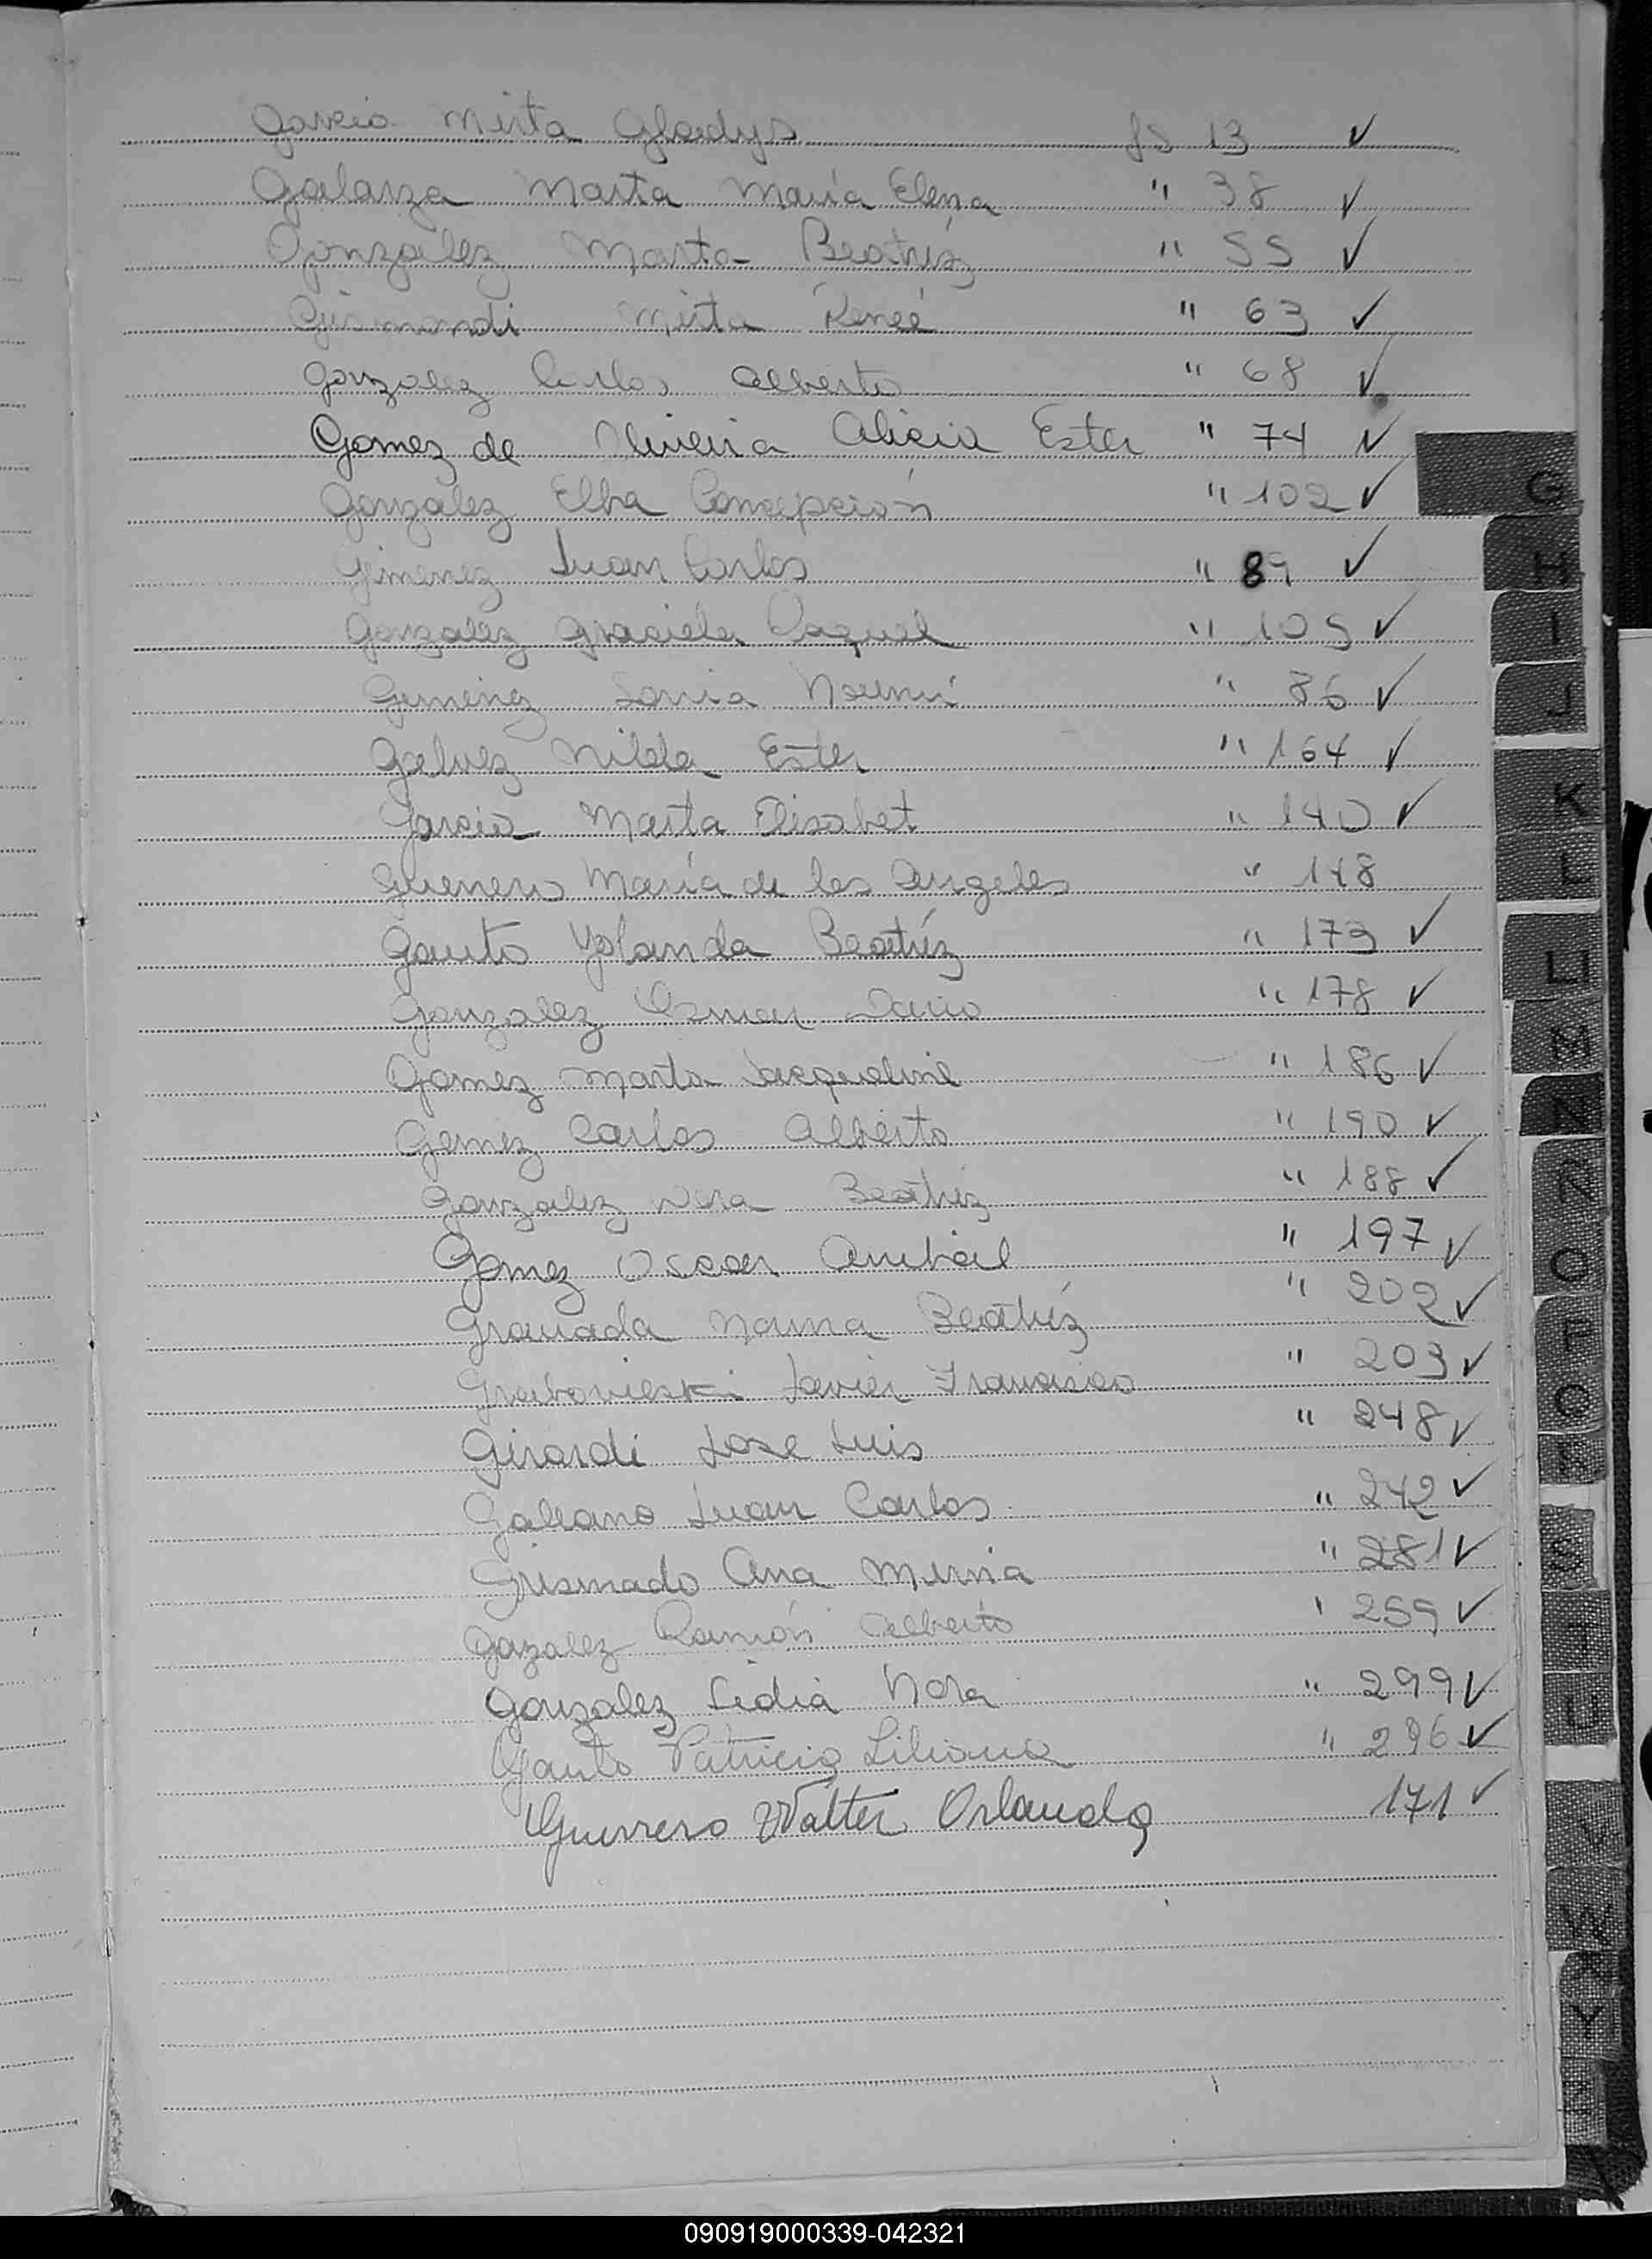 Garcia Mirta Gladys fs 13 ✓
Galarza Marta María Elena " 38 ✓
Gonzalez Marta Beatríz " 55 ✓
Gismondi Mirta Reneé " 63 ✓
Gonzalez Carlos Alberto " 68 ✓
Gomez de Oliveira Alicia Ester " 74 ✓
Gonzalez Elba Concepción " 102 ✓
Gimenez Juan Carlos " 89 ✓
Gonzalez Graciela Raquel " 105 ✓
Gimenez Sonia Noemí " 86 ✓
Galvez Nilda Ester " 164 ✓
Garcia Marta Elisabet " 140 ✓
Guerrero María de los Angeles " 148
Gauto Yolanda Beatríz " 173 ✓
Gonzalez Osmar Dario " 178 ✓
Gomez Marta Jacqueline " 186 ✓
Gomez Carlos Alberto " 190 ✓
Gonzalez Nora Beatriz " 188 ✓
Gomez Oscar Anibal " 197 ✓
Granada Norma Beatríz " 202 ✓
Javier Francisco " 203 ✓
Girardi Jose Luis " 248 ✓
Galeano Juan Carlos " 242 ✓
Grismado Ana Mirna " 281 ✓
Gozalez Ramón Alberto " 259 ✓
Gonzalez Lidia Nora " 299 ✓
Gauto Patricia Liliana " 296 ✓
Guerrero Walter Orlando 171 ✓
G
H
I
J
K
L
LL
M
N
Ñ
O
P
Q
S
T
U
V
W
X
Y
090919000339-042321